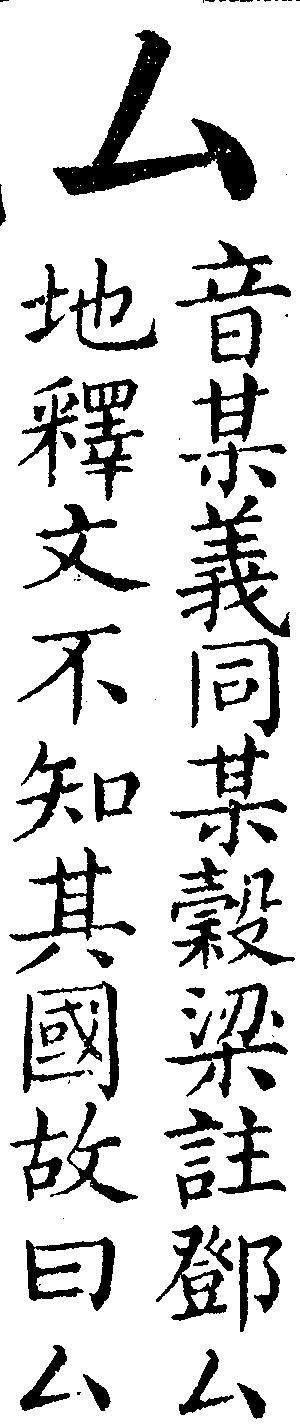 厶
音某義同某榖梁註鄧厶
地釋文不知其國故曰厶